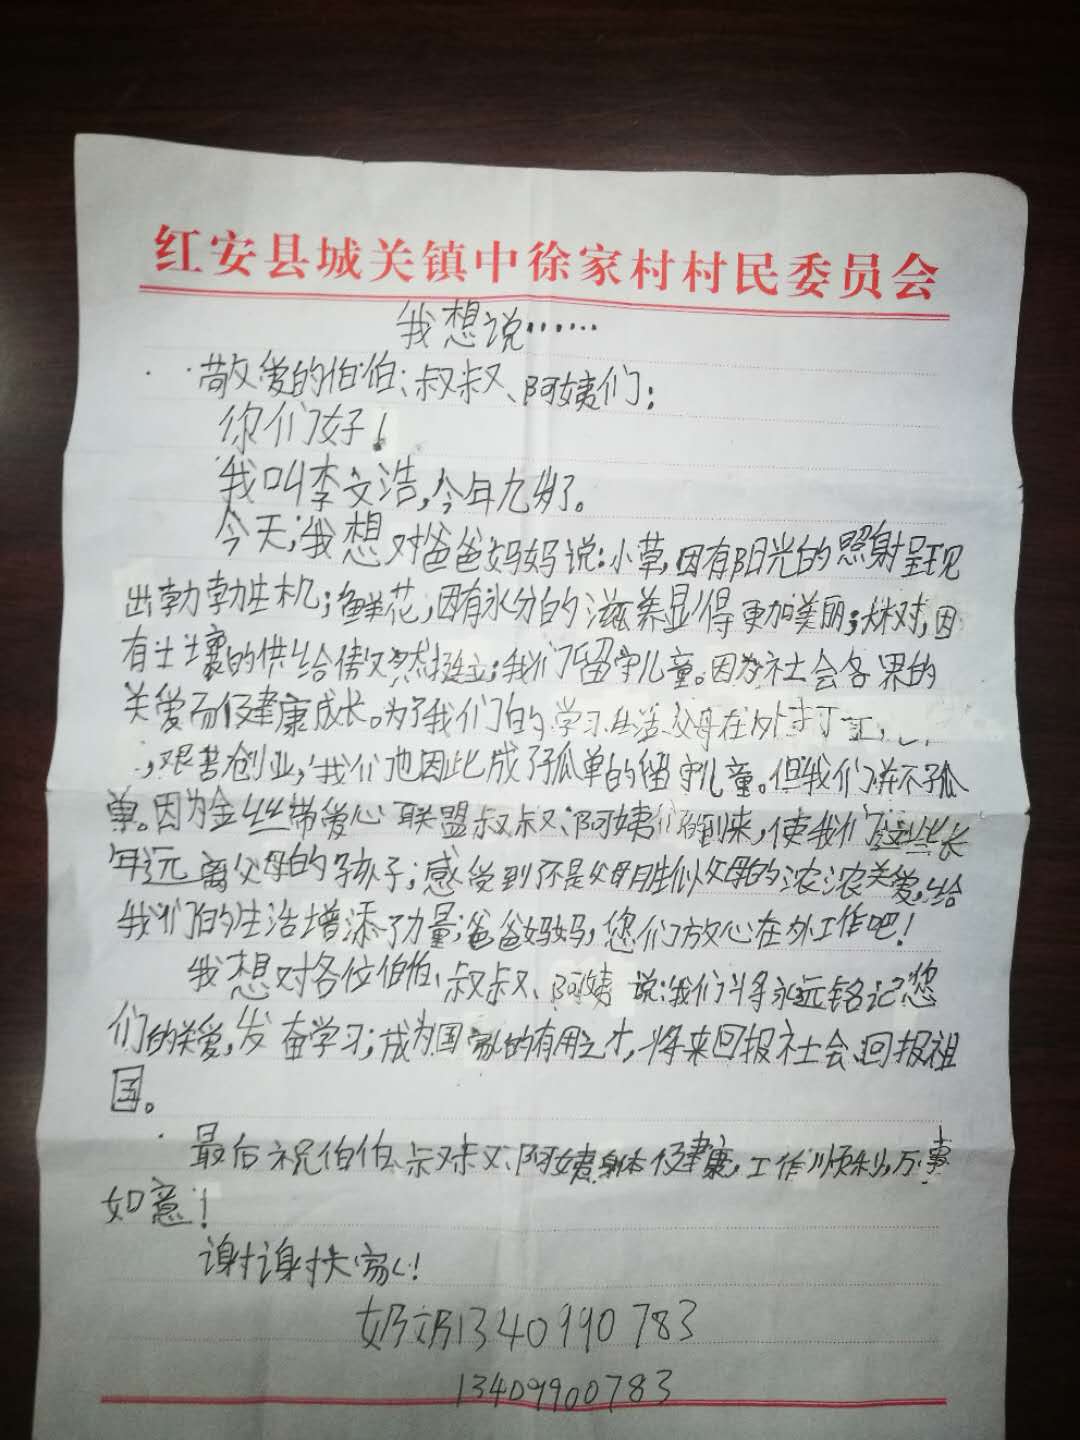 红安县城关镇中徐家村村民委员会
我想说……
敬爱的伯伯、叔叔、阿姨们:
你们好!
我叫李文浩,今年九岁了。
今天,我想对爸爸妈妈说:小草,因有阳光的照射呈现
出勃勃生机;鲜花,因有水分的滋养显得更加美丽;大树,因
有土壤的供给傲然挺立;我们留守儿童。因为社会各界的
关爱而健康成长。为了我们的学习生活父母在外打工,
,艰苦创业,我们也因此成了孤单的留守儿童。但我们并不孤
单。因为金丝带爱心联盟叔叔、阿姨们的到来,使我们这些长
年远离父母的孩子;感受到不是父母胜似父母的浓浓关爱,给
我们的生活增添了力量;爸爸妈妈,您们放心在外工作吧!
我想对各位伯伯、叔叔、阿姨说:我们将永远铭记您
们的关爱,发奋学习;成为国家的有用之才,将来回报社会、回报祖
国。
最后祝伯伯、叔叔、阿姨身体健康,工作顺利,万事
如意!
谢谢大家!
奶奶1340990783
13409900783